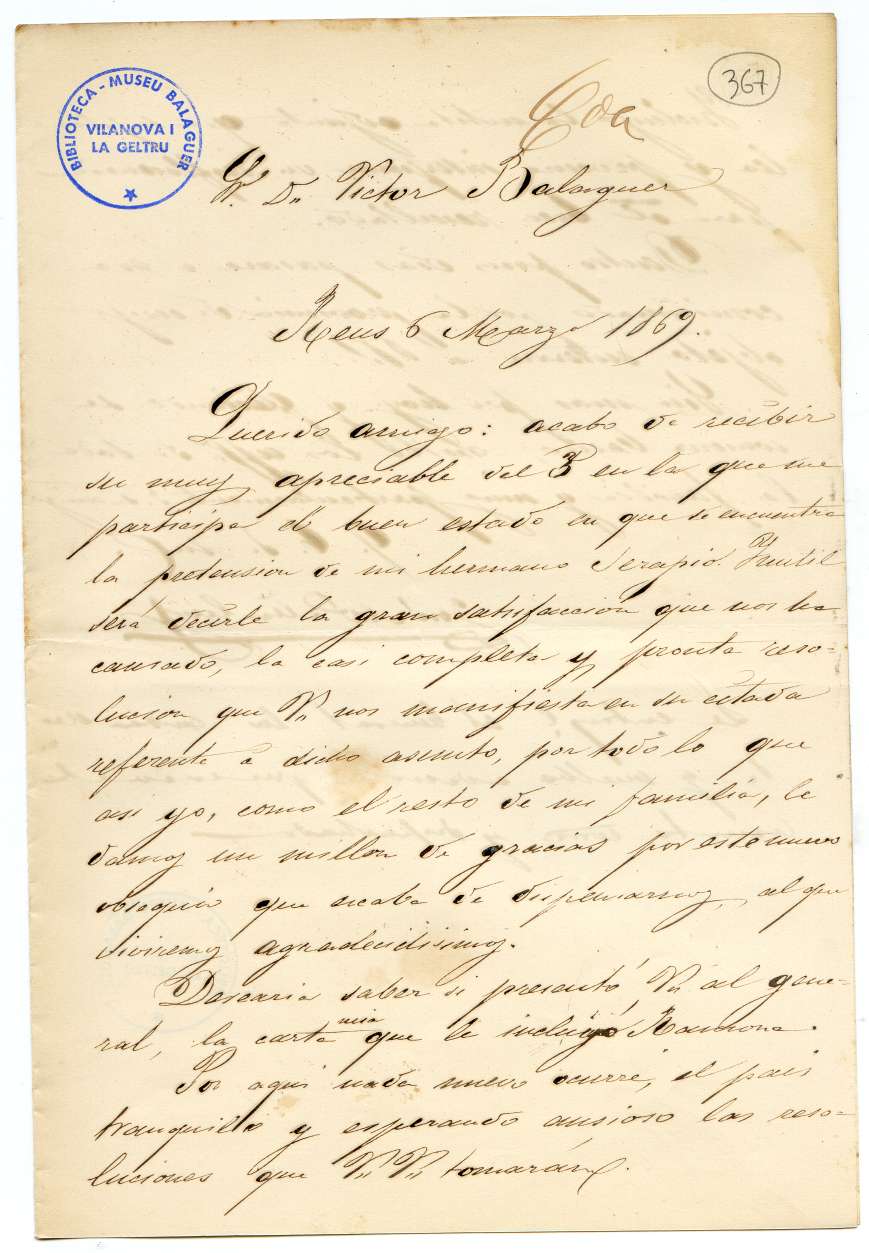 BIBLIOTECA - MUSEU BALAGUER
VILANOVA I
LA GELTRU
367
Cda
Sr. Dn. Victor Balaguer
Reus 6 Marzo 1869.
Querido amigo: acabo de recibir
su muy apreciable del 3 en la que me
participa el buen estado en que se encuentra
la pretension de mi hermano Serapio. Ynutil
será decirle la gran satisfaccion que nos ha
causado, la casi completa y pronta reso-
lucion que V. nos manifiesta en su citada
referente á dicho asunto, por todo lo que
asi yo, como el resto de mi familia, le
damos un millon de gracias por este nuevo
obsequio que acaba de dispensarnos, al que
viviremos agradecidisimos.
Desearia saber si presentó V. al gene-
ral, la carta mia que le incluyó Ramona.
Por aqui nada nuevo ocurre, el pais
tranquilo y esperando ansioso las reso-
luciones que V.V. tomarán.